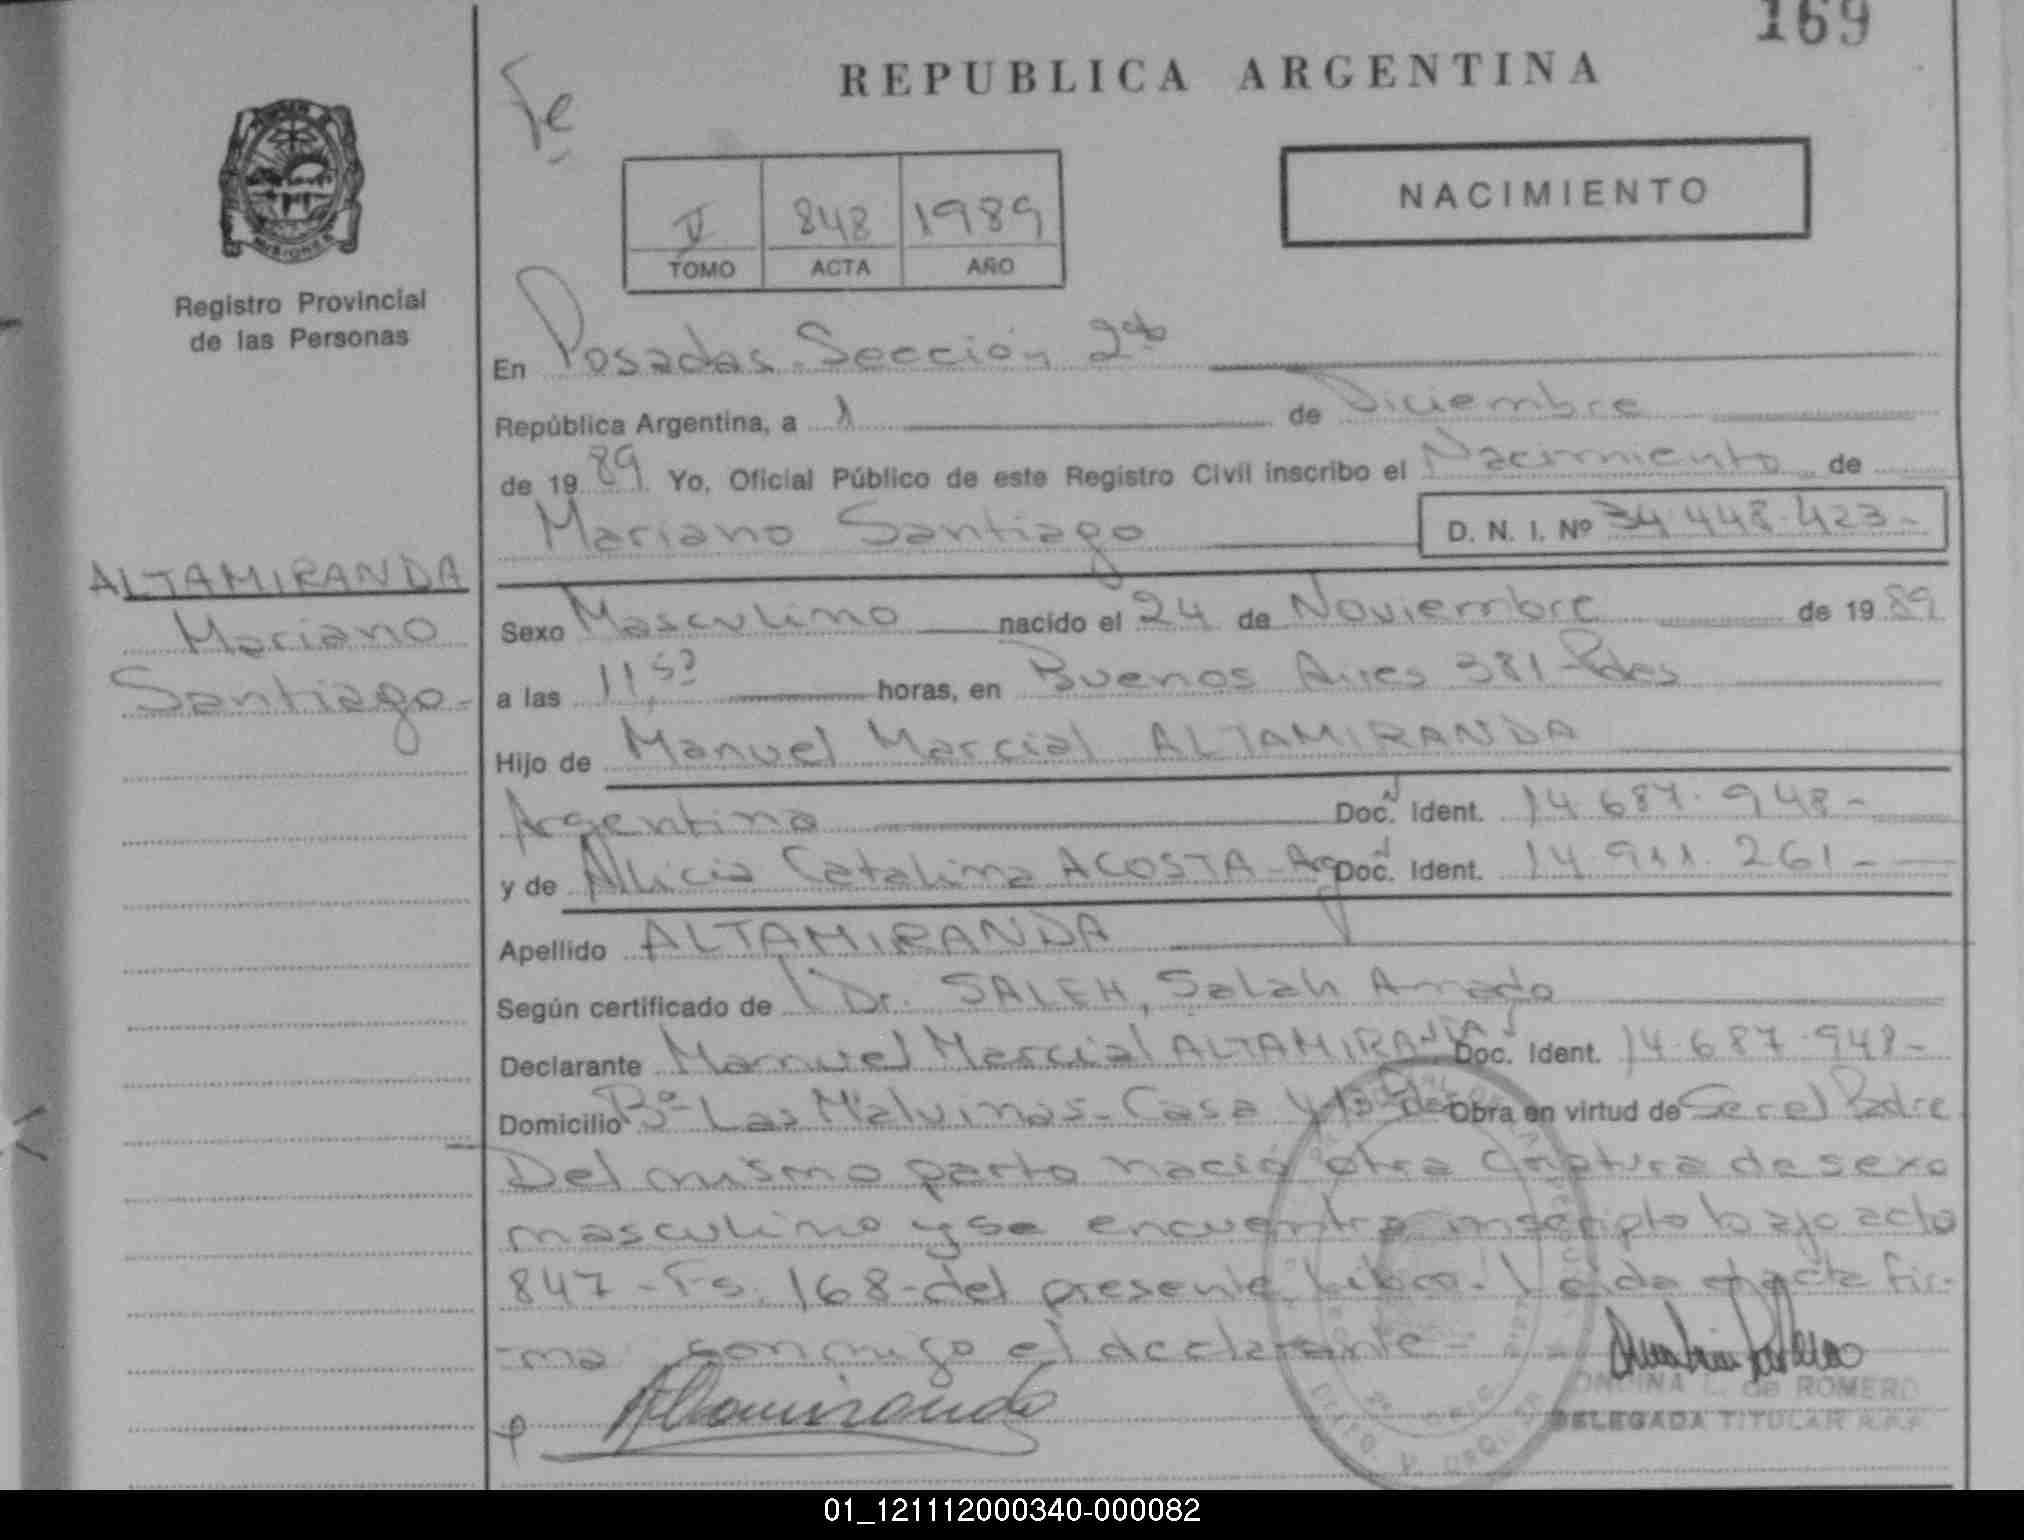 169
REPUBLICA ARGENTINA
Fe
NACIMIENTO
II 848 1989
TOMO ACTA AÑO
MISIONES
Registro Provincial
de las Personas
En Posadas Sección 2da
República Argentina, a 1 de Diciembre
de 1989 Yo, Oficial Público de este Registro Civil inscribo el Nacimiento de
Mariano Santiago D. N. I. Nº 34.448.423-
ALTAMIRANDA
Mariano
Santiago-
Sexo Masculino nacido el 24 de Noviembre de 1989
a las 11,50 horas, en Buenos Aires 381 Pdas
Hijo de Manuel Marcial ALTAMIRANDA
Argentino Doc. Ident. 14.687.948-
y de Alicia Catalina ACOSTA-Arg Doc. Ident. 14.911.261-
Apellido ALTAMIRANDA
Según certificado de Dr. SALEH, Salah Amado
Declarante Manuel Marcial ALTAMIRANDA Doc. Ident. 14.687.948-
Domicilio Bº Las Malvinas-Casa Obra en virtud de Ser el Padre
Del mismo parto nació otra criatura de sexo
masculino y se encuentra inscripto bajo acta
847-Fs. 168-del presente Libro. Leida el acta fir-
-ma conmigo el declarante-
Altamiranda
ONDINA L. de ROMERO
DELEGADA TITULAR R.P.P.
01_121112000340-000082